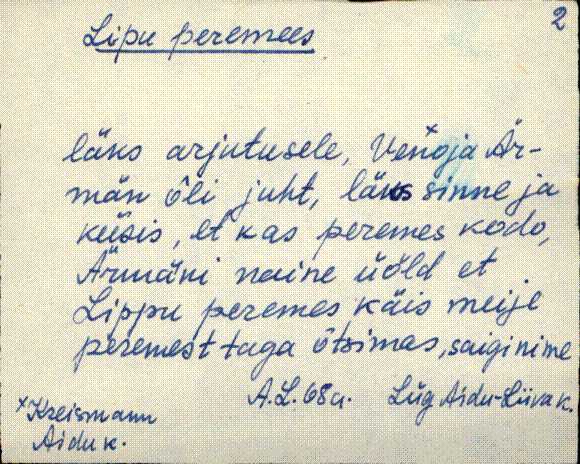 2
Lipu peremees
läks arjutusele, Venoja Är-
män õli juht, läks sinne ja
küsis, et kas peremes kodo,
Ärmäni naine üöld et
Lippu peremes käis meije
peremest taga õtsimas, saigi nime
A.L. 68 a. Lüg Aidu-Liiva k.
x Kreismann
Aidu k.